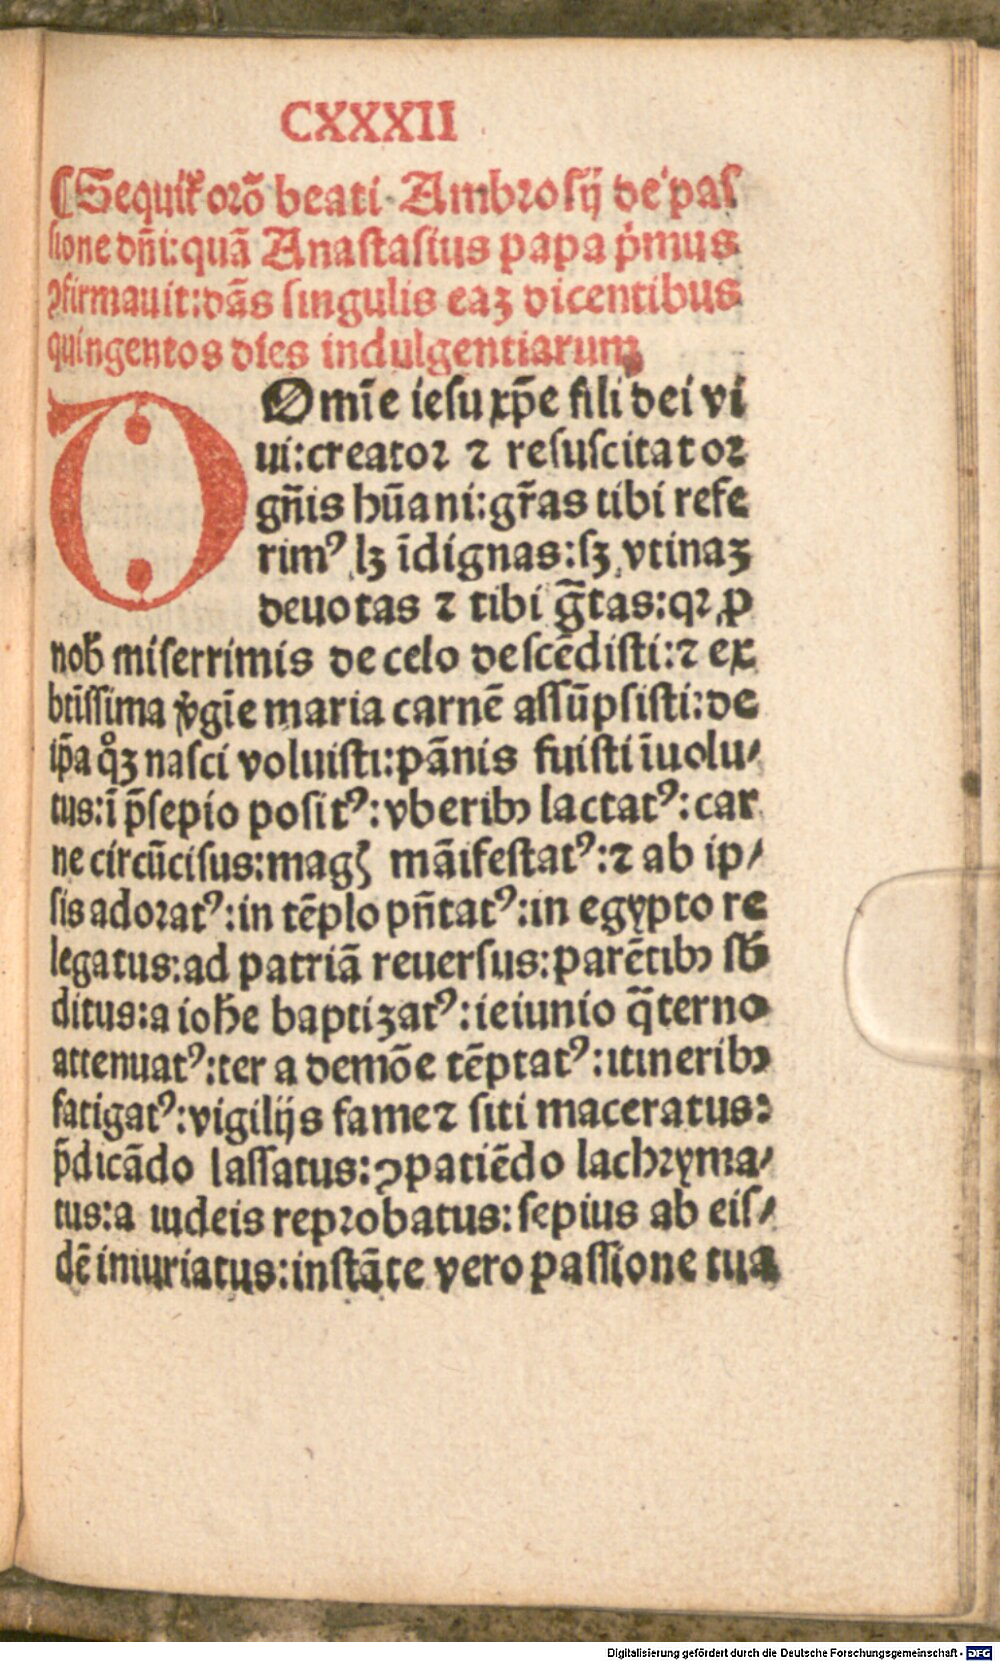 CXXXII
¶Sequit᷑ orō beati Ambrosij de pas
sione dn̄i:quā Anastasius papa p̓mus
ꝯfirmauit:dās singulis eaꝫ dicentibus
quingentos dies indulgentiarum
DOmīe iesu xp̄e fili dei vi
ui:creator ⁊ resuscitator
gn̄is hūani:gr̄as tibi refe
rimꝰ lꝫ īdignas:sꝫ vtinaꝫ
deuotas ⁊ tibi ḡtas:qꝛ ꝓ
nob̄ miserrimis de celo descēdisti:⁊ ex
btīssima v̓gīe maria carnē assūpsisti:de
ip̄a qͦꝫ nasci voluisti:pānis fuisti īuolu⸗
tus:ī p̄sepio positꝰ:vberibꝫ lactatꝰ:car
ne circūcisus:magꝭ māifestatꝰ:⁊ ab ip⸗
sis adoratꝰ:in tēplo pn̄tatꝰ:in egypto re
legatus:ad patriā reuersus:parētibꝫ sb̄
ditus:a ioh̄e baptizatꝰ:ieiunio q̄terno
attenuatꝰ:ter a demōe tēptatꝰ:itineribꝫ
fatigatꝰ:vigilijs fame ⁊ siti maceratus:
p̄dicādo lassatus:ꝯpatiēdo lachryma⸗
tus:a iudeis reprobatus:sepius ab eis⸗
dē iniuriatus:instāte vero passione tua
Digitalisierung gefördert durch die Deutsche Forschungsgemeinschaft - DFG